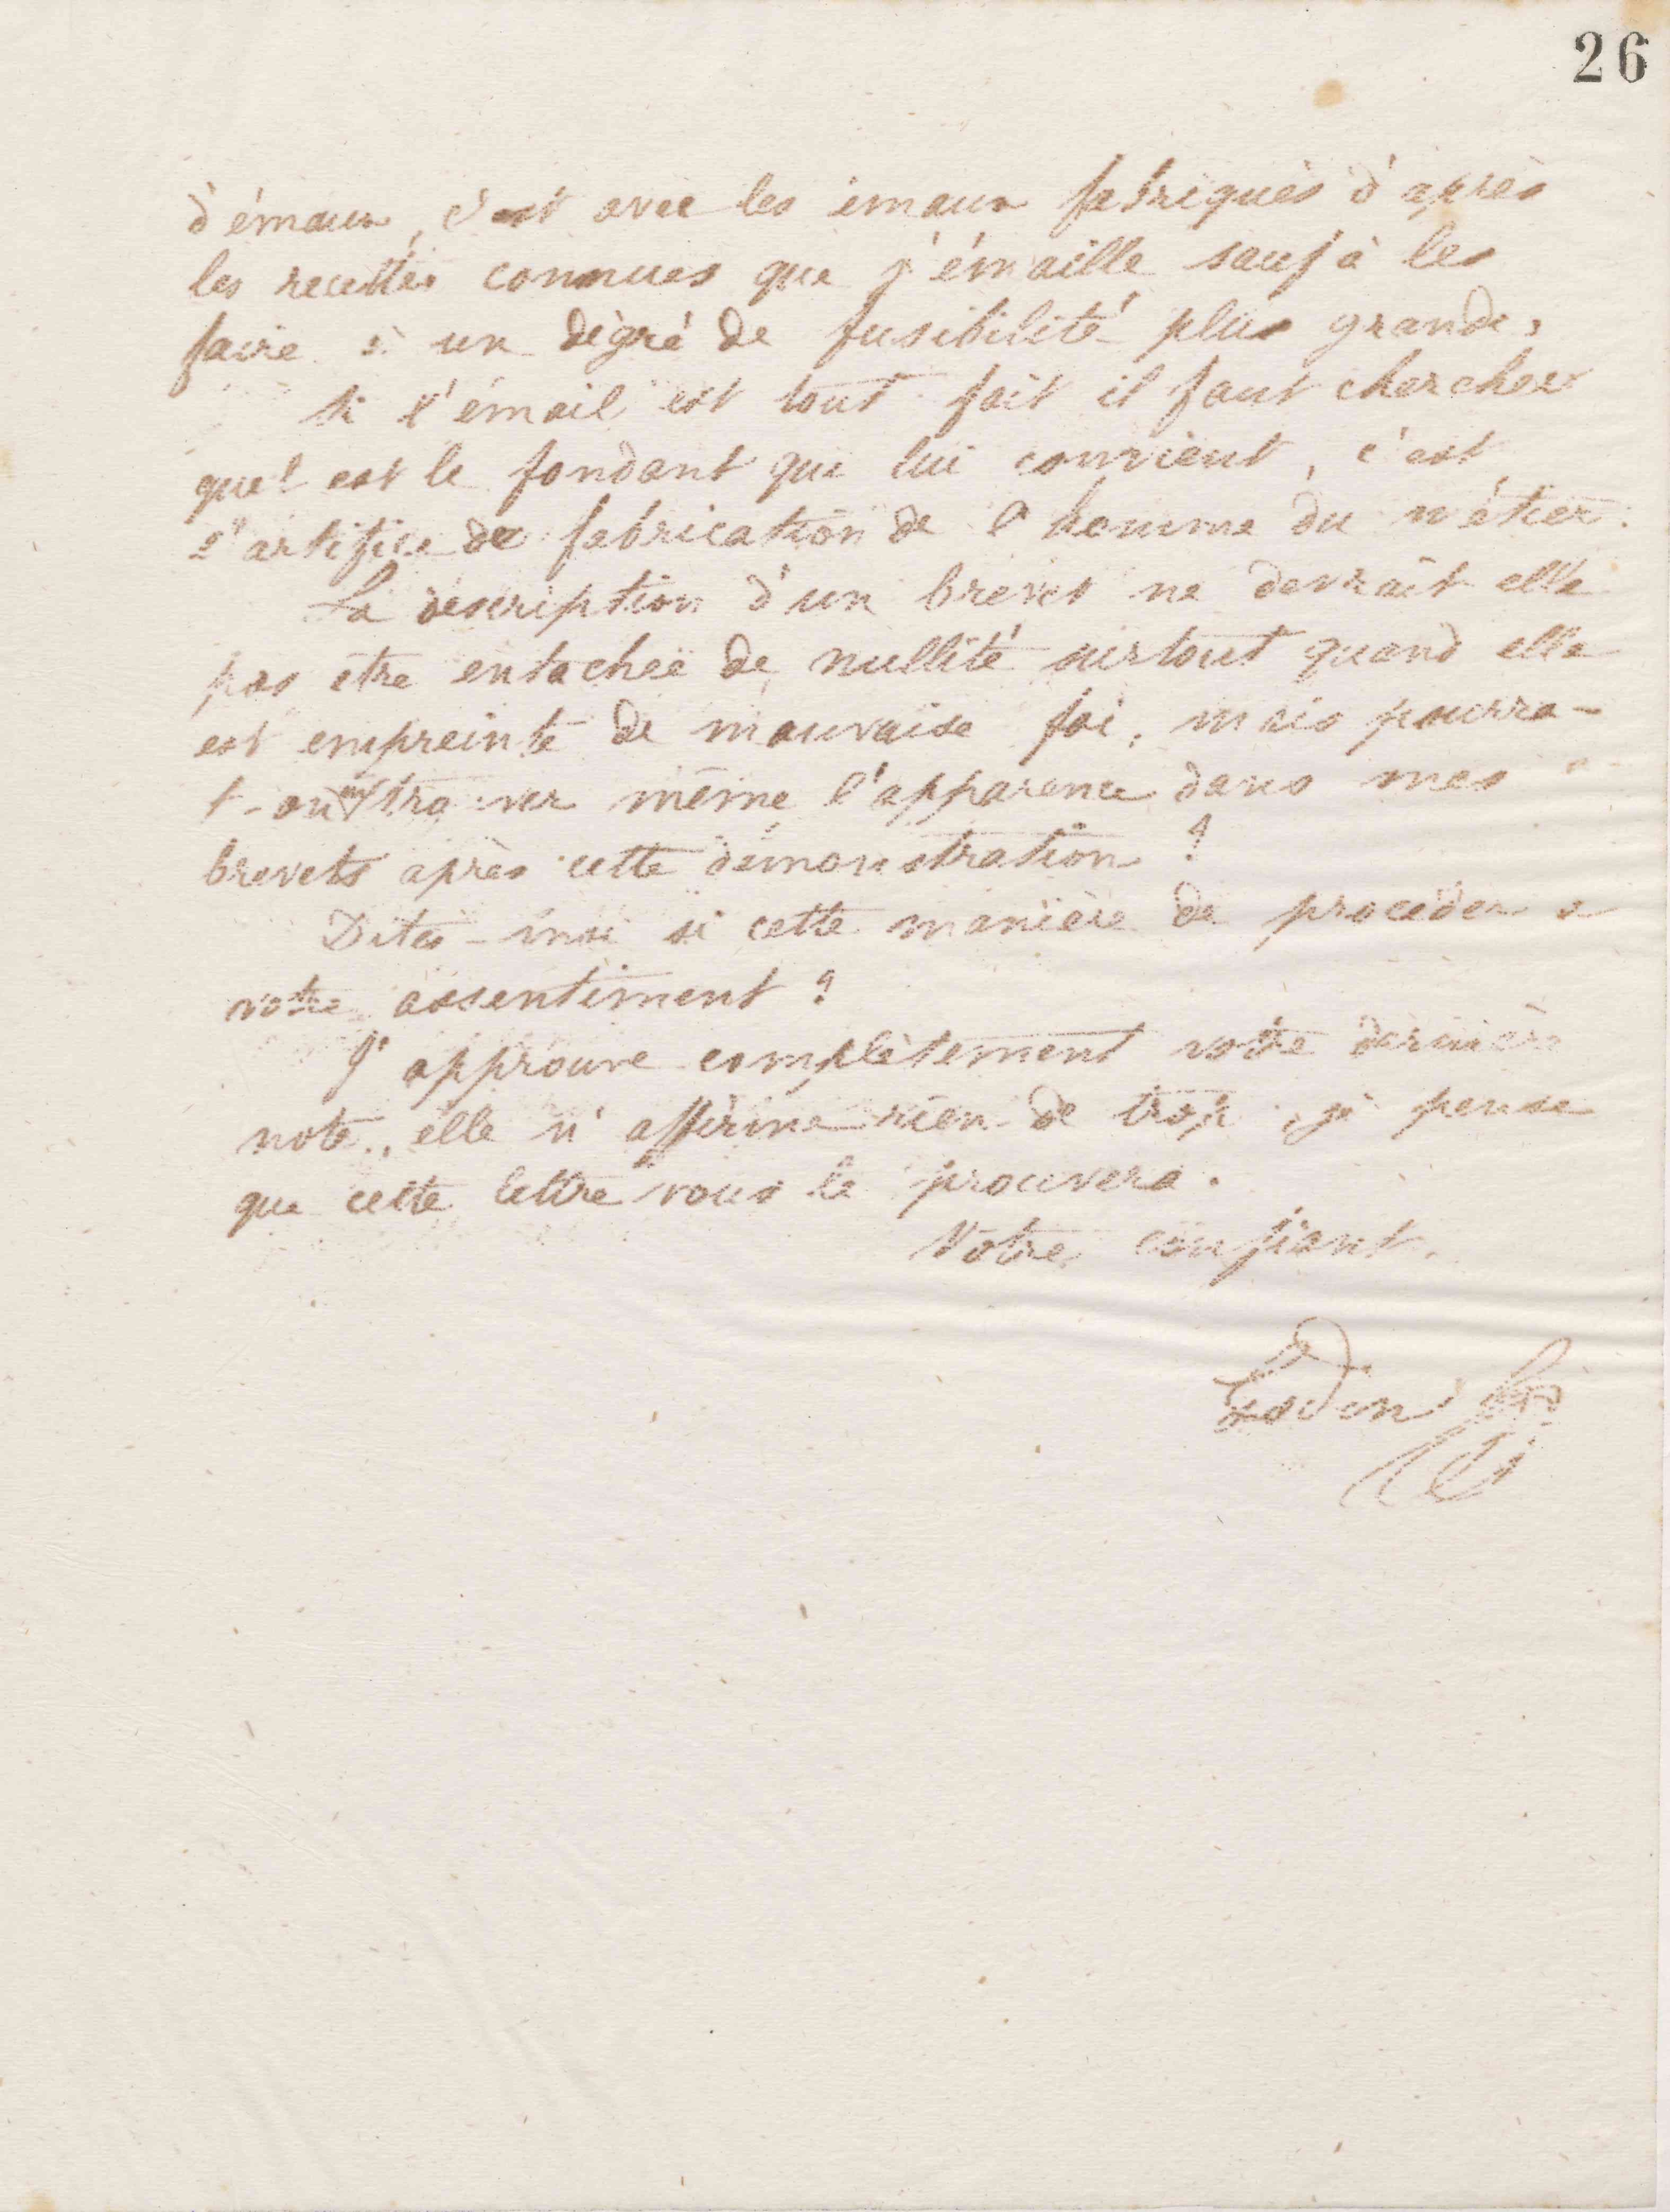 26
d'émaux, c'est avec les émaux fabriqués d'après
les recettes connues que j'émaille sauf à les
faire à un dégré de fusibilité plus grande,
si l'émail est tout fait il faut chercher
quel est le fondant qui lui convient, c'est
l'artifice de fabrication de l'homme du métier.
La description d'un brevet ne devrait elle
pas etre entachée de nullité surtout quand elle
est empreinte de mauvaise foi, mais pourra-
t-on en trouver même l'apparence dans mes
brevets après cette démonstration ?
Dites-moi si cette manière de procéder a
votre assentiment ?
J'approuve complètement votre dernière
note, elle n'affirme rien de trop, je pense
que cette lettre vous le prouvera.
Votre confiant.
Godin